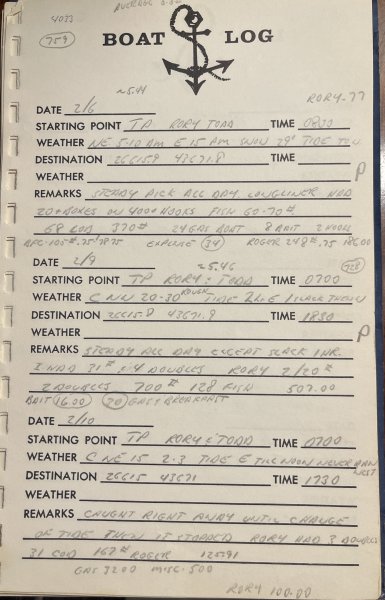 4033
759
BOAT LOG
~5.44
RORY-77
DATE 2/6
STARTING POINT TP RORY TODD TIME 0800
WEATHER NE 5-10 AM E 15 AM SNOW 29° TIDE TOW
DESTINATION 26615.9 43671.8 TIME
WEATHER P
REMARKS STEADY PICK ALL DAY LONGLINER HAD
20+ BOXES ON 400+ HOOKS FISH 60-70#
68 COD 370# 24 GAS BOAT 8 BAIT 2 HOOKS
105# .75 / 7875 EXPENSE 34 ROGER 248# .75 186.00
~5.46
DATE 2/9
STARTING POINT TP RORY & TODD TIME 0700
WEATHER C NW 20-30 ROUGH TIDE
DESTINATION 26615.8 43671.8 TIME 1830
WEATHER P
REMARKS STEADY ALL DAY EXCEPT SLACK 1 HR.
I HAD 31# & 4 DOUBLES RORY 2/20#
2 DOUBLES 700# 128 FISH 507.00
BAIT 16.00 20 GAS & BREAKFAST
DATE 2/10
STARTING POINT TP RORY & TODD TIME 0700
WEATHER C NE 15 2-3 TIDE E TILL NOON NEVER RAN WEST
DESTINATION 26615 43671 TIME 1730
WEATHER
REMARKS CAUGHT RIGHT AWAY UNTIL CHANGE
OF TIDE THEN IT STOPPED RORY HAD 3 DOUBLES
31 COD 167# ROGER 125.91
GAS 32.00 MISC. 5.00
RORY 100.00